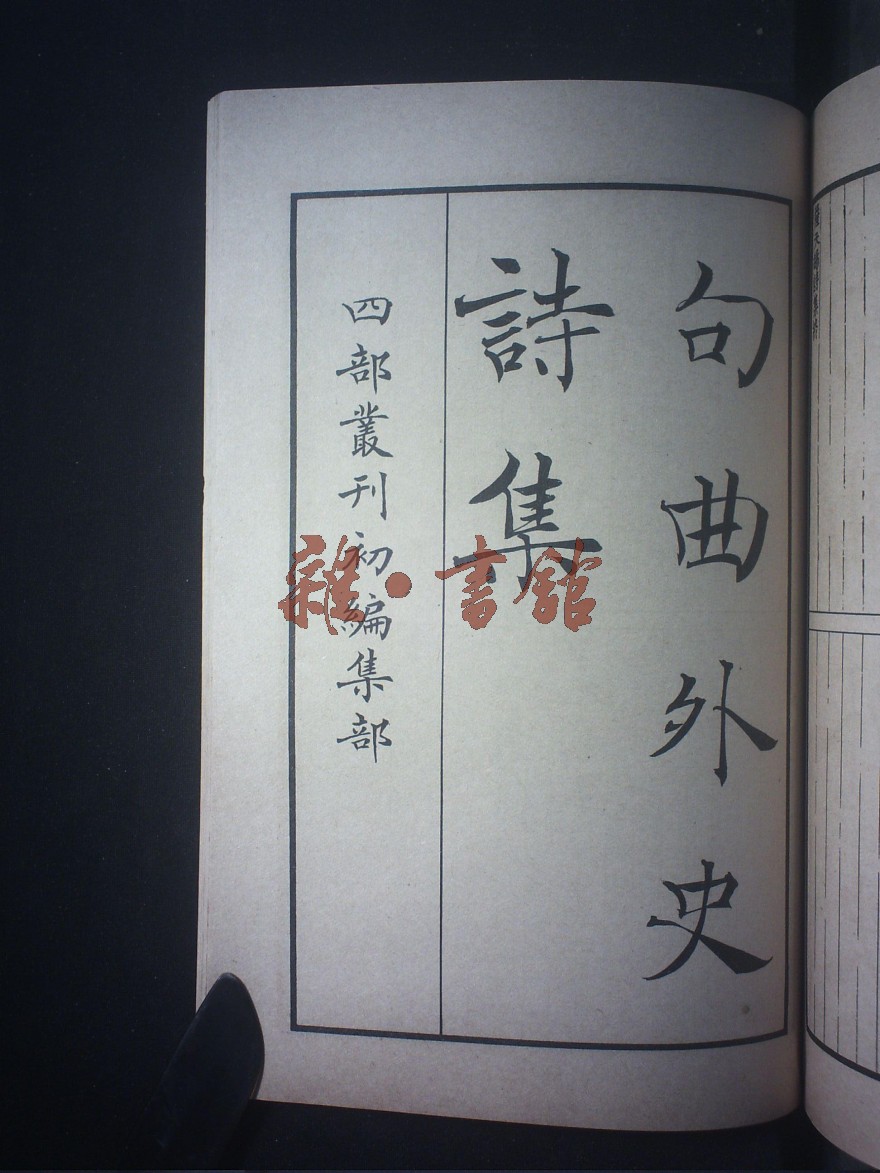 句曲外史
詩集
四部叢刊初編集部
雜·書館